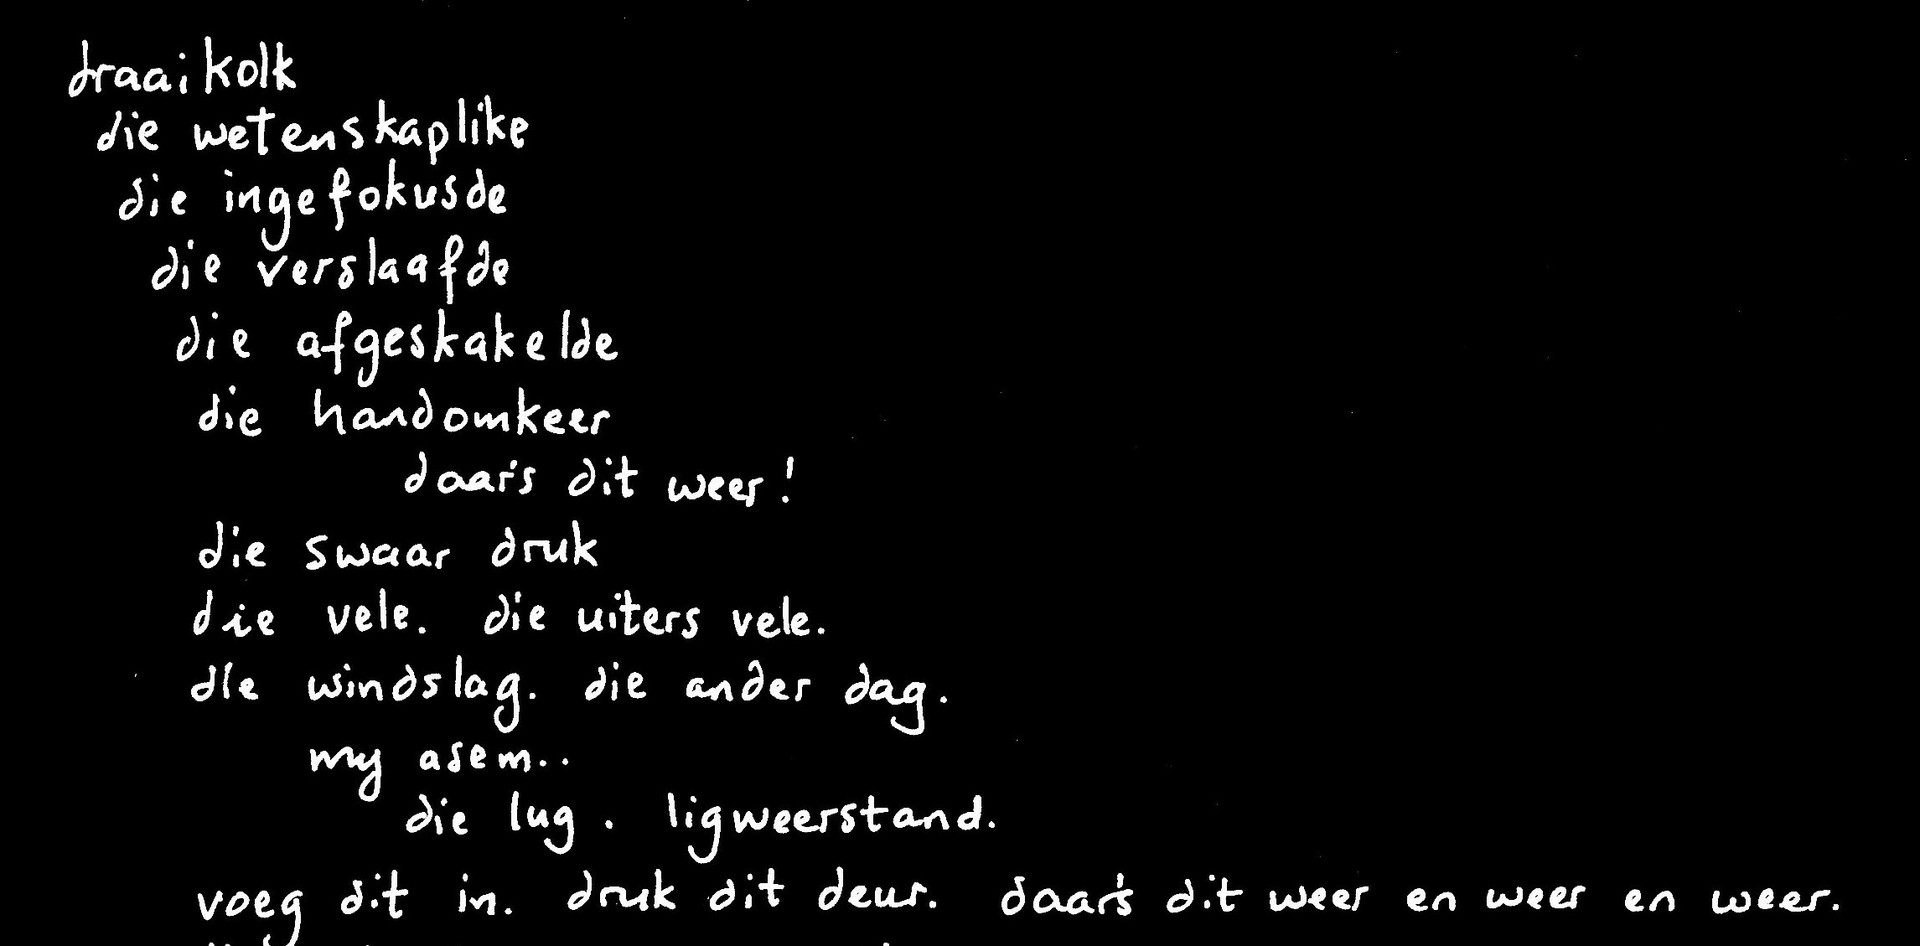 draaikolk
die wetenskaplike
die ingefokusde
die verslaafde
die afgeskakelde
die handomkeer
daar's dit weer!
die swaar druk
die vele. die uiters vele.
die windslag. die ander dag.
my asem..
die lug. ligweerstand.
voeg dit in. druk dit deur. daar's dit weer en weer en weer.